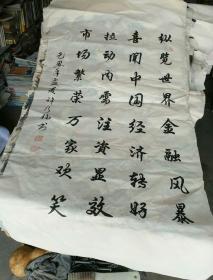 纵览世界金融风暴
喜闻中国经济转好
拉动内需注资显效
市场繁荣万家欢笑